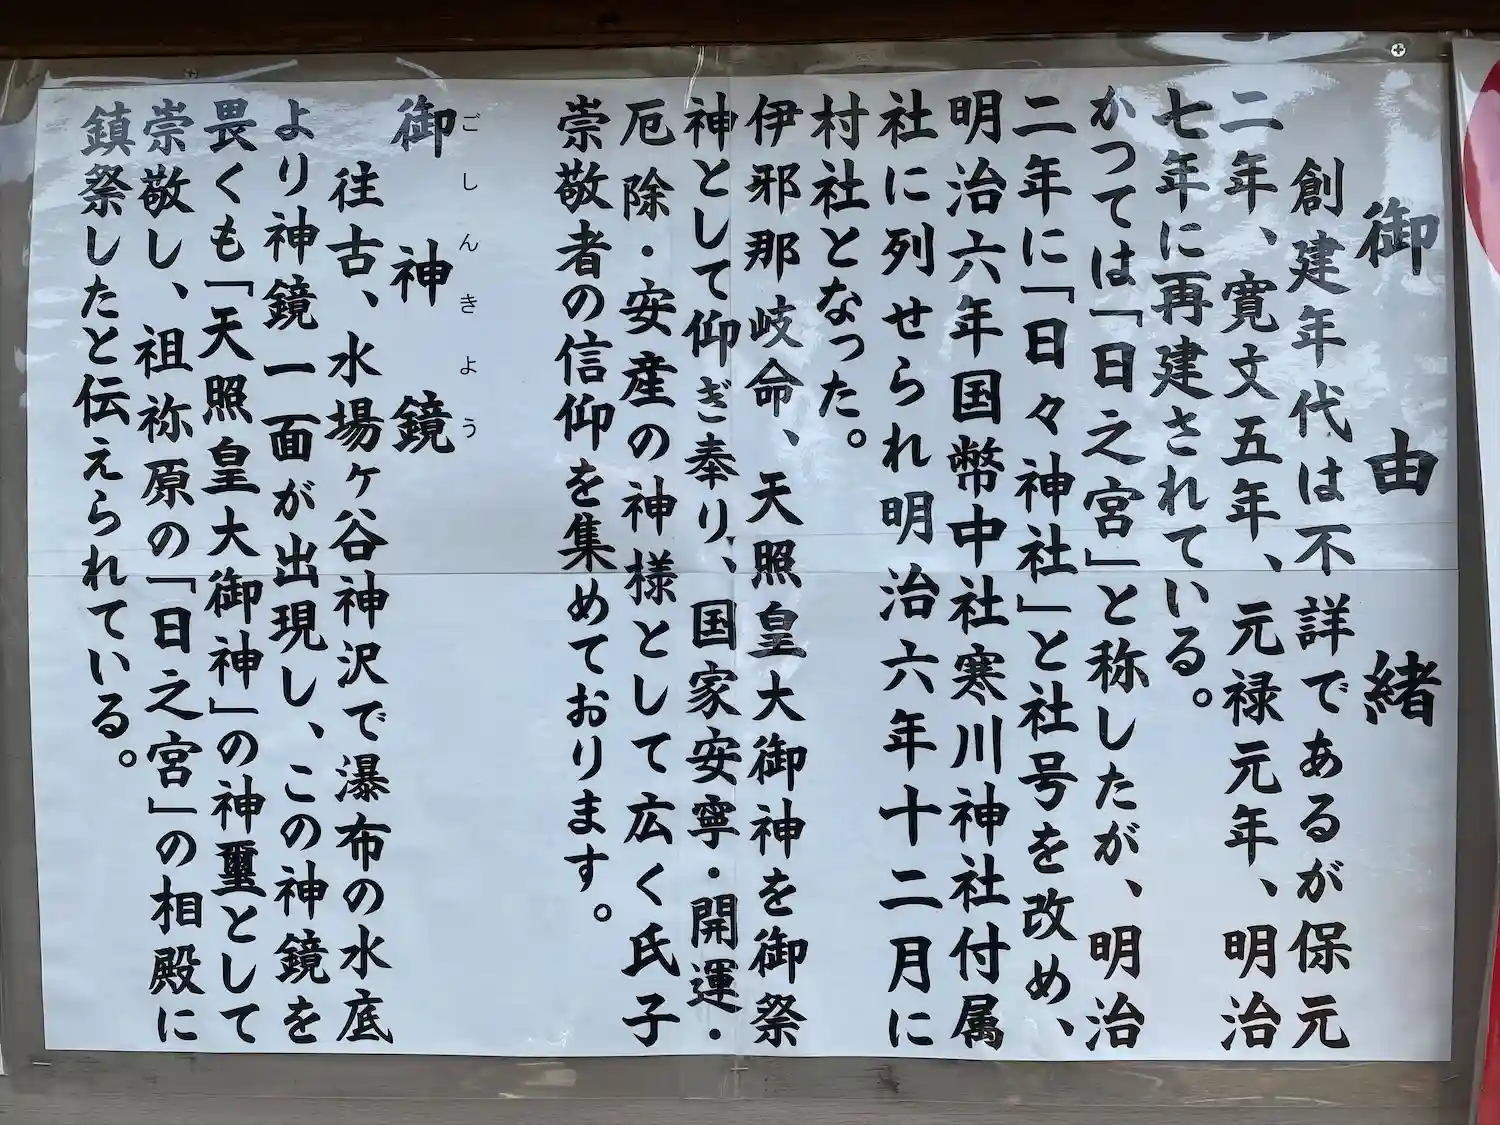 御由緒
創建年代は不詳であるが保元
二年、寛文五年、元禄元年、明治
七年に再建されている。
かつては「日之宮」と称したが、明治
二年に「日々神社」と社号を改め、
明治六年国幣中社寒川神社付属
社に列せられ明治六年十二月に
村社となった。
伊邪那岐命、天照皇大御神を御祭
神として仰ぎ奉り、国家安寧・開運・
厄除・安産の神様として広く氏子
崇敬者の信仰を集めております。
ごしんきよう
御神鏡
往古、水場ヶ谷神沢で瀑布の水底
より神鏡一面が出現し、この神鏡を
畏くも「天照皇大御神」の神璽として
崇敬し、祖祢原の「日之宮」の相殿に
鎮祭したと伝えられている。